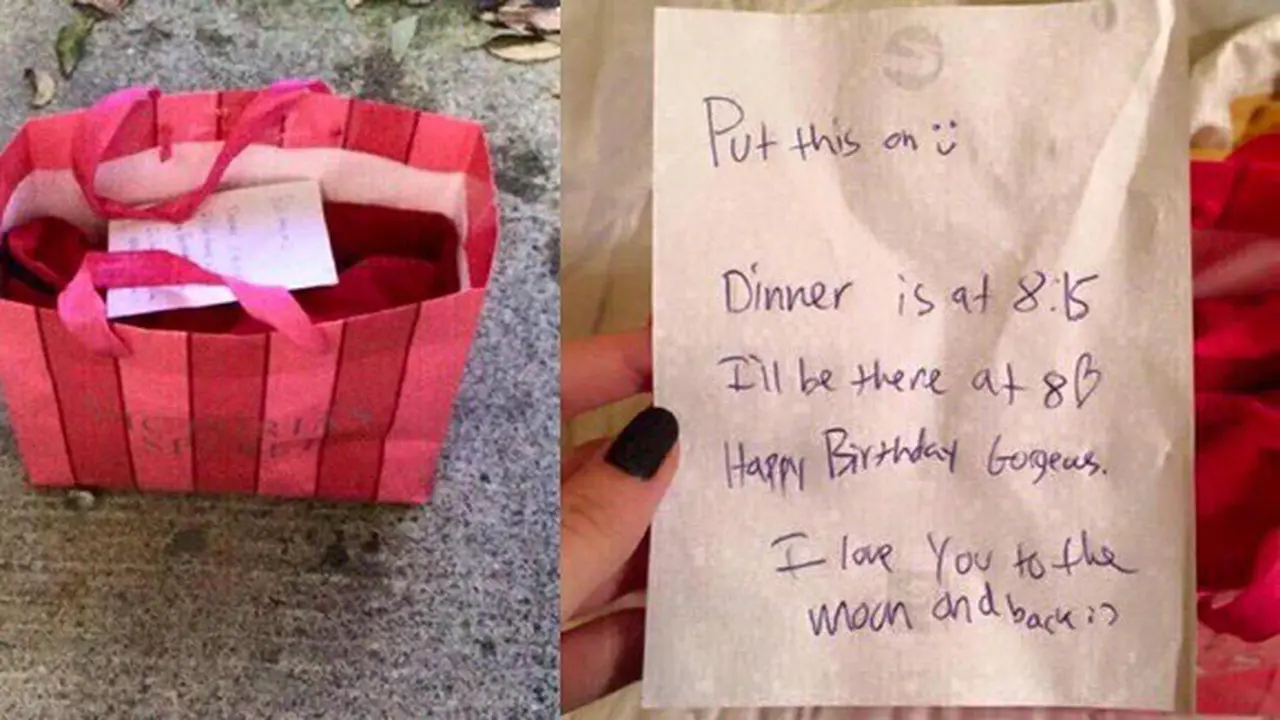 VICTORIA'S
SECRET
Put this on :)
Dinner is at 8:15
I'll be there at 8♡
Happy Birthday Gorgeous.
I love You to the
moon and back :)